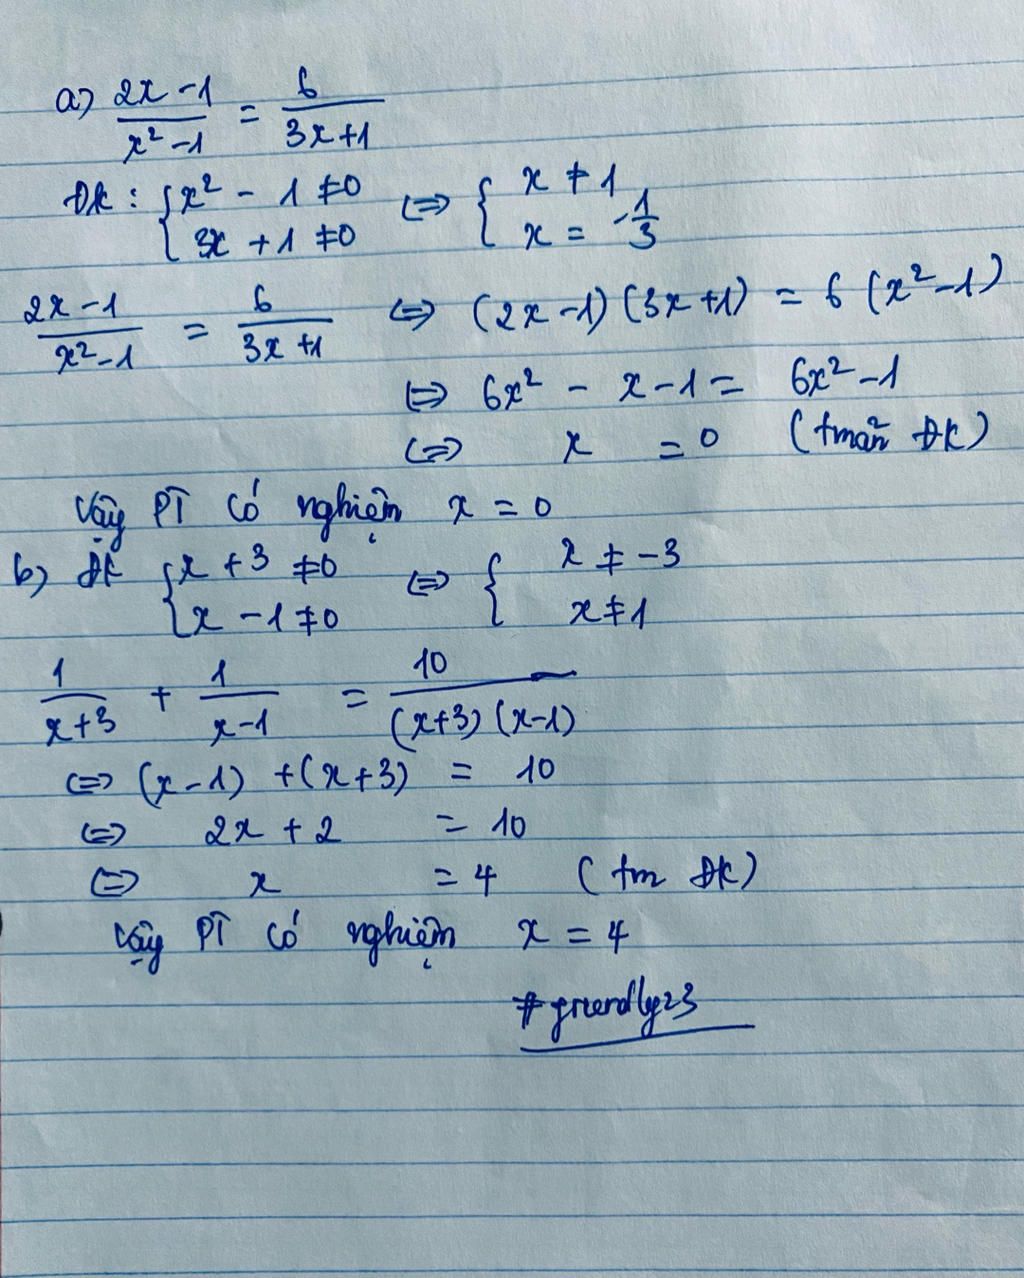 a) (2x-1)/(x²-1) = 6/(3x+1)
ĐK : { x² - 1 ≠0 ; 3x +1 ≠0 <=> { x ≠ 1 ; x = -1/3
(2x-1)/(x²-1) = 6/(3x+1) <=> (2x-1)(3x+1) = 6(x²-1)
<=> 6x² - x-1 = 6x²-1
<=> x = 0 (tmãn ĐK)
Vậy PT có nghiệm x = 0
b) ĐK { x +3 ≠0 ; x -1 ≠0 <=> { x ≠ -3 ; x ≠ 1
1/(x+3) + 1/(x-1) = 10/((x+3)(x-1))
<=> (x-1) +(x+3) = 10
<=> 2x + 2 = 10
<=> x = 4 (tm ĐK)
Vậy PT có nghiệm x = 4